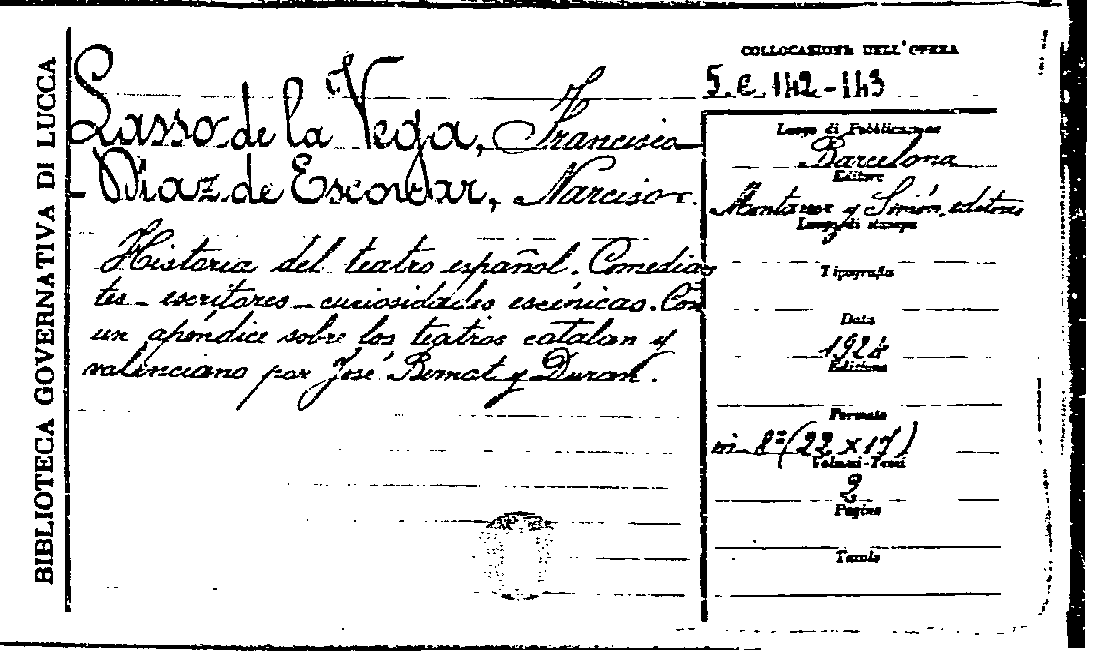 BIBLIOTECA GOVERNATIVA DI LUCCA
COLLOCAZIONE DELL'OPERA
S.C. 142-143
Lasso de la Vega, Francisco
- Diaz de Escovar, Narciso.
Historia del teatro español. Comedian
tes - escritores - curiosidades escénicas. Con
un apéndice sobre los teatros catalan y
valenciano por José Bernat y Duran.
Luogo di Pubblicazione
Barcelona
Editore
Montaner y Simón, editores
Luogo di stampa
Tipografia
Data
1924
Edizione
Formato
in-8º (22 x 17)
Volumi-Tomi
2
Pagine
Tavole